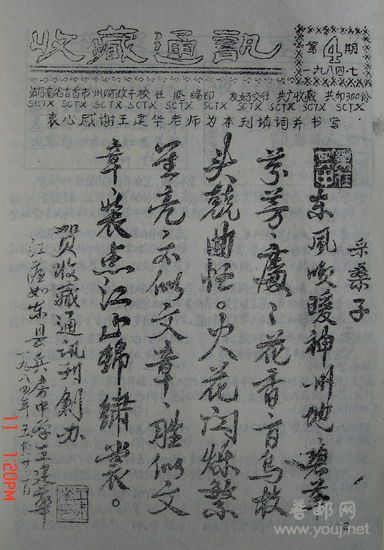 收藏通訊
第4期
一九八四.七
湖南省吉首市州财政干校 编印 友好交往 收藏 共印300份
SCTX SCTX SCTX SCTX SCTX SCTX SCTX SCTX
衷心感谢王建华老师为本刊填词并书写
采桑子
东风唤暖神州地,碧草
芬芳,處々花香,百鸟枝
头競曲忙。火花闪烁繁
星亮,不似文章,胜似文
章,装点江山锦绣裳。
贺收藏通讯刊創办
江苏如东县兵房中学王建华
一九八四年五月十日
11 1:20PM
普邮网
www.youj.net